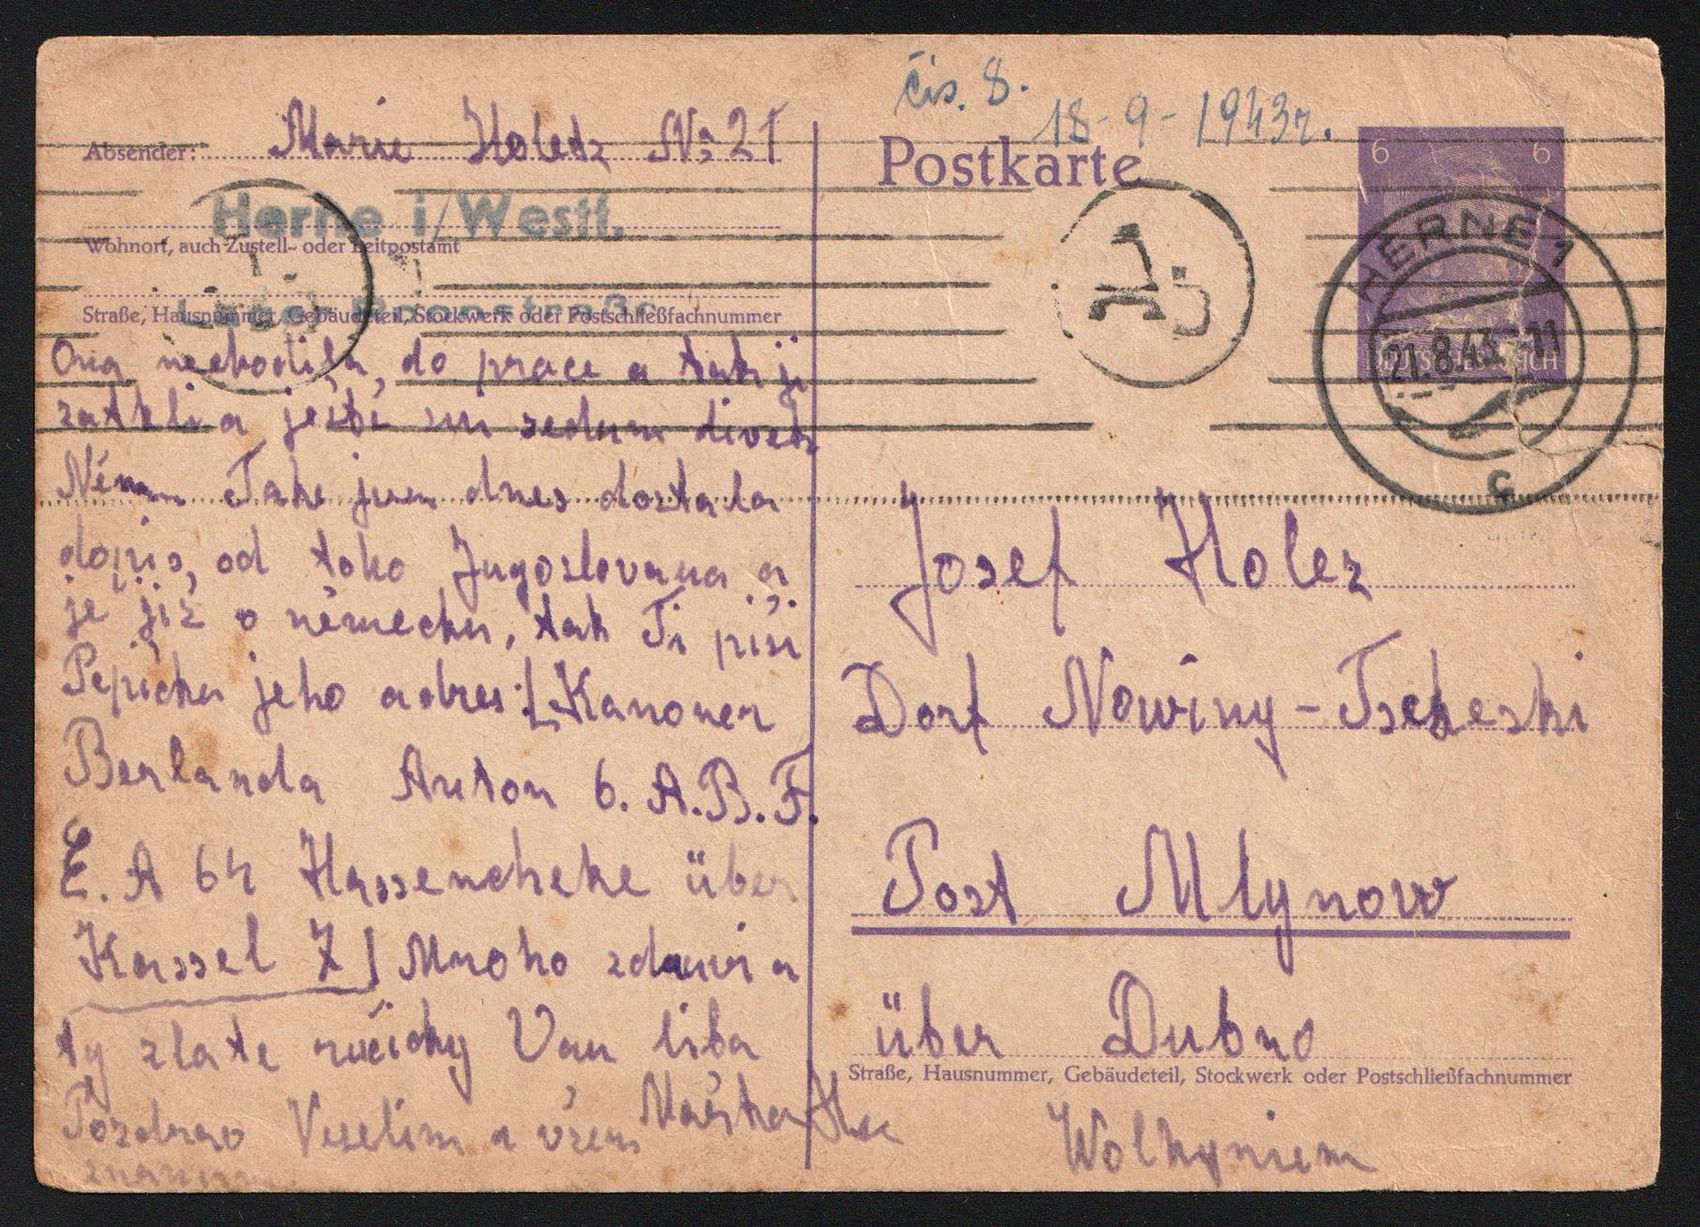 čís. 8.
18-9-1943r.
Absender: Marie Holetz Nr. 21
Herne i/Westf.
Wohnort, auch Zustell- oder Leitpostamt
Straße, Hausnummer, Gebäudeteil, Stockwerk oder Postschließfachnummer
Ona nechodila, do prace a tak ji
zatkli a ještě sni sedum divek
Také jsem dnes dostala
dopis, od toho Jugoslovana a
je již v německu, tak Ti piši
Pepičku jeho adres: [Kanoner
Berlanda Anton 6. A.B.F.
E. A 64 Hassencheke über
Kassel 7] Mnoho zdravi a
ty zlate ručičky Vam liba
Pozdrav Veselim a všem Mařka
znamim
Postkarte
6 6
DEUTSCHES REICH
HERNE 1
21.8.43-11
c
Ab
Josef Holez
Dorf Nowiny-Tscheski
Post Mlynow
über Dubno
Straße, Hausnummer, Gebäudeteil, Stockwerk oder Postschließfachnummer
Wolhyniem